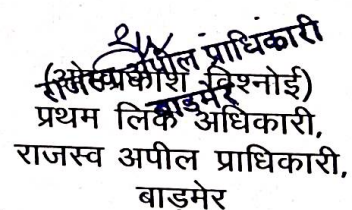 राजस्व अपील प्राधिकारी
बाडमेर
(ओमप्रकाश विश्नोई)
प्रथम लिंक अधिकारी,
राजस्व अपील प्राधिकारी,
बाडमेर